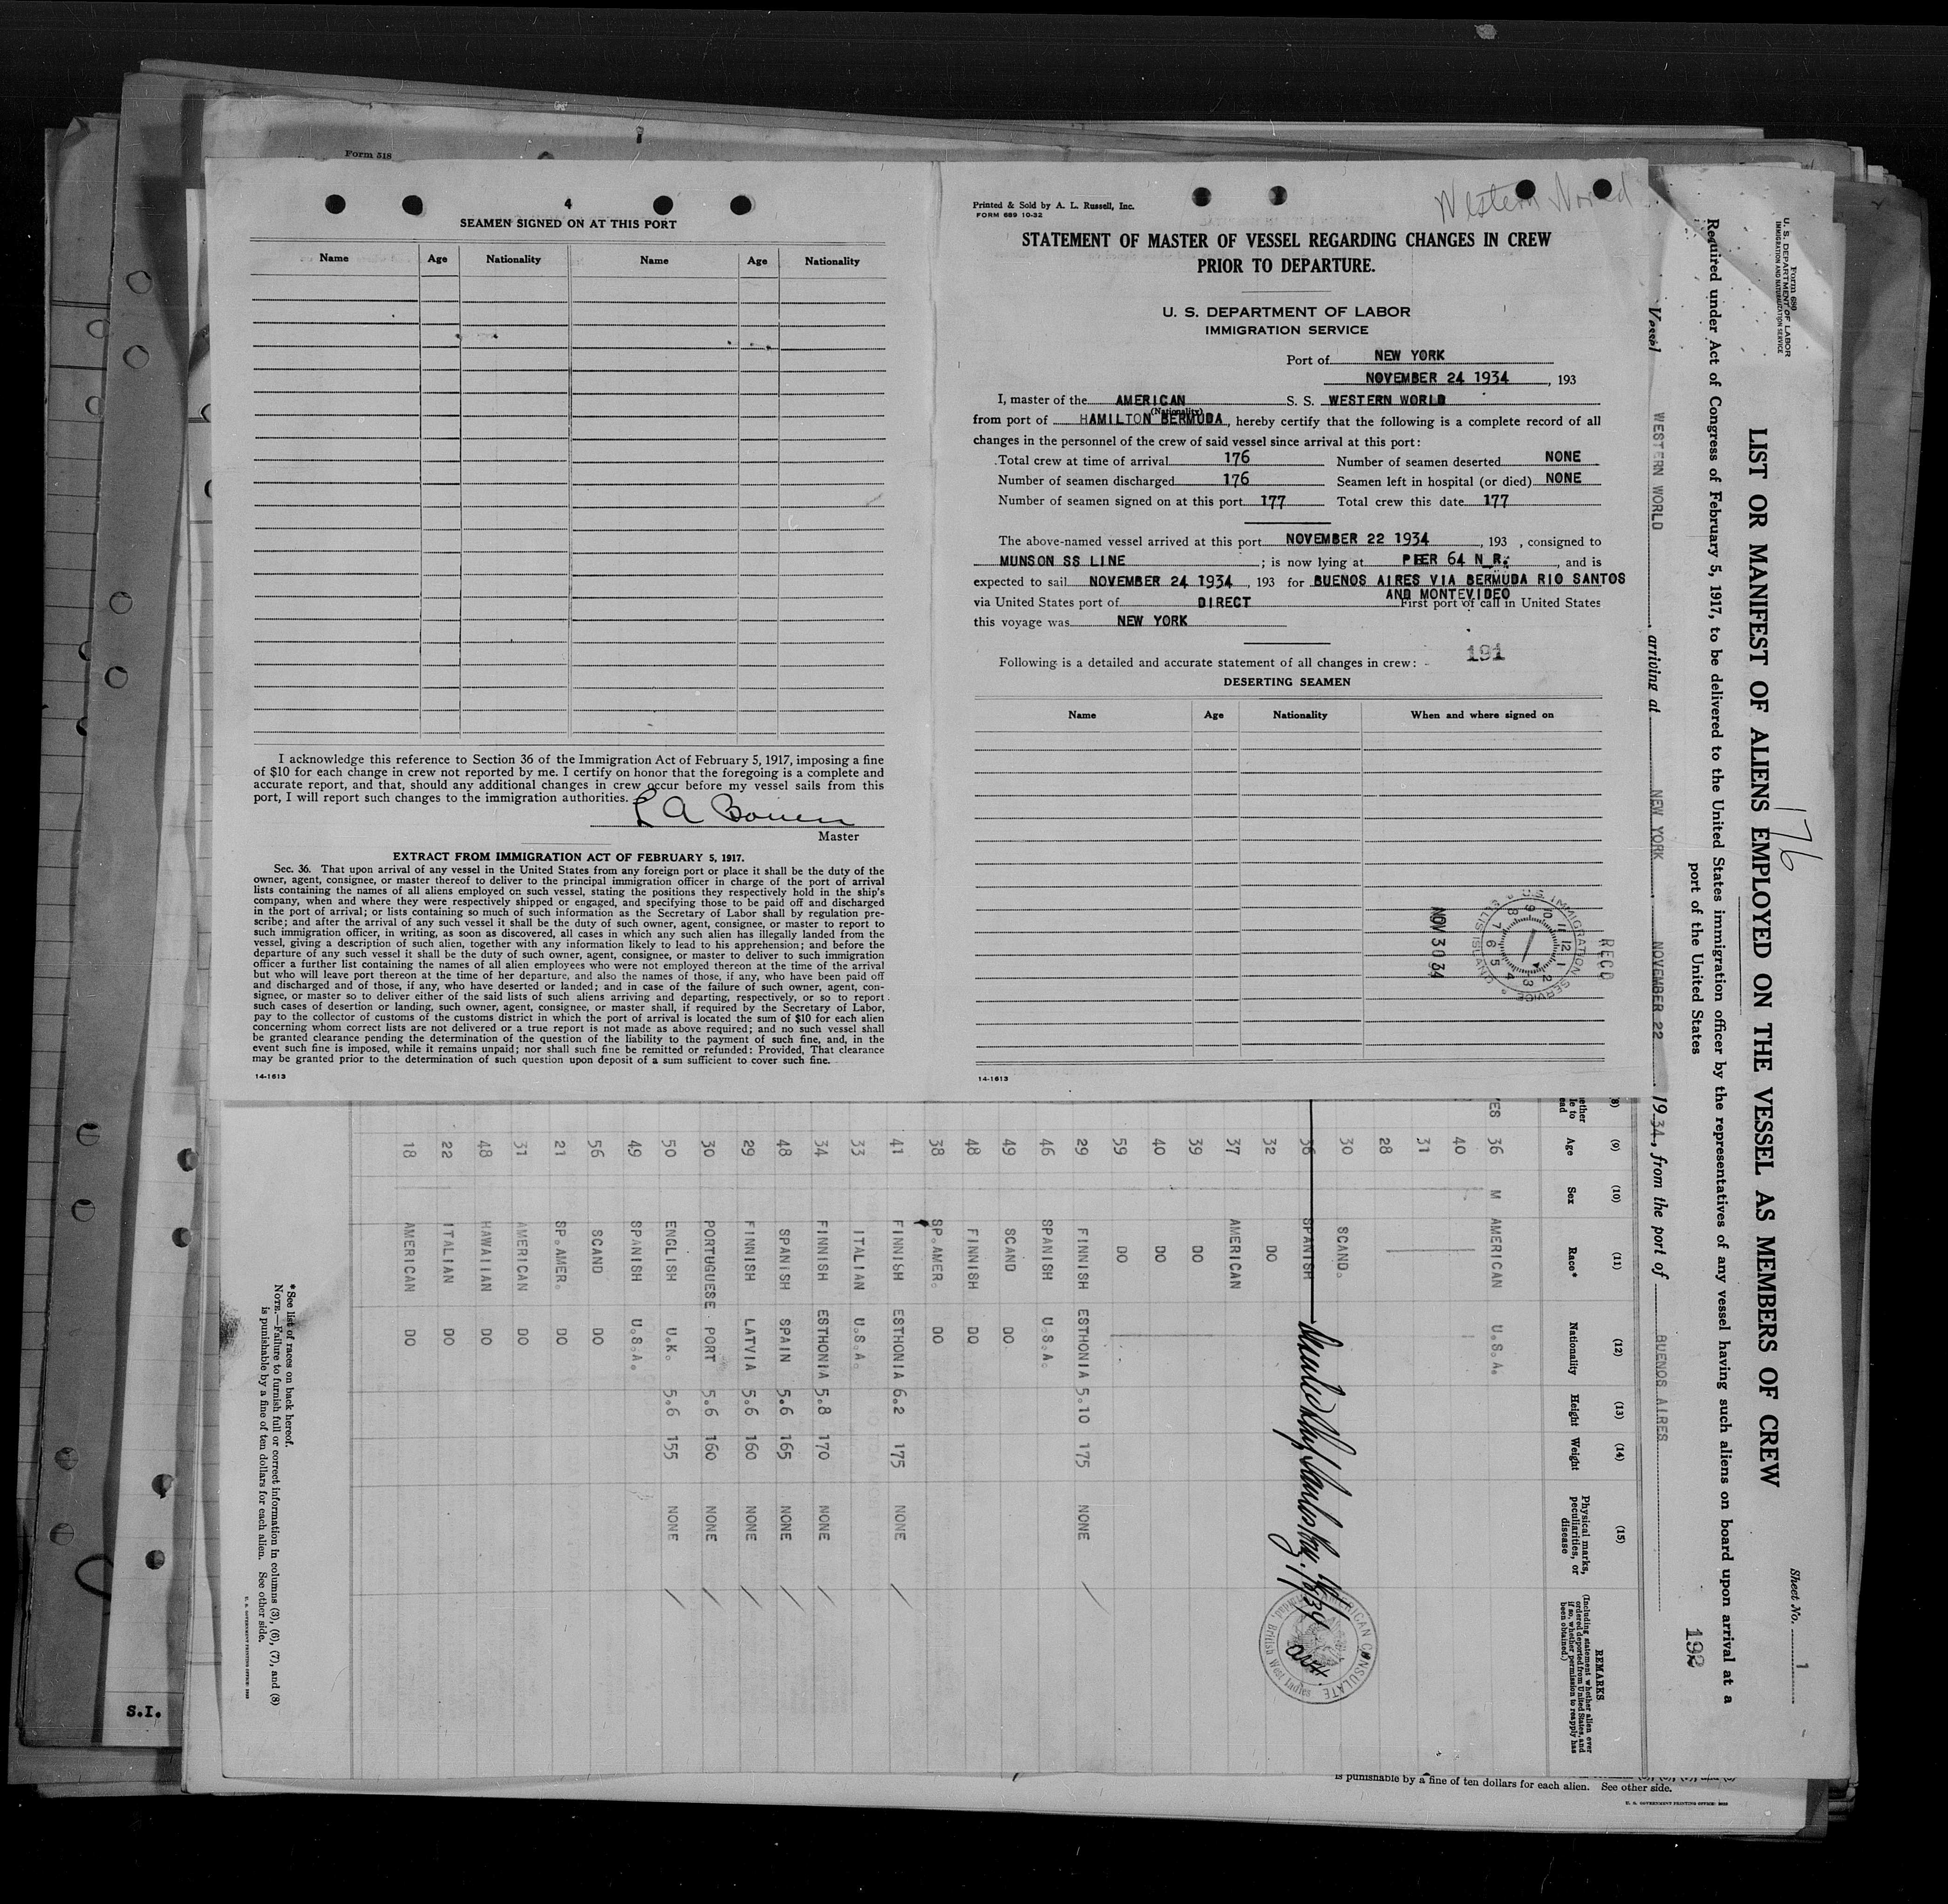 Form 518
4
SEAMEN SIGNED ON AT THIS PORT
Name Age Nationality Name Age Nationality
I acknowledge this reference to Section 36 of the Immigration Act of February 5, 1917, imposing a fine
of $10 for each change in crew not reported by me. I certify on honor that the foregoing is a complete and
accurate report, and that, should any additional changes in crew occur before my vessel sails from this
port, I will report such changes to the immigration authorities.
L A Bowen
Master
EXTRACT FROM IMMIGRATION ACT OF FEBRUARY 5, 1917.
Sec. 36. That upon arrival of any vessel in the United States from any foreign port or place it shall be the duty of the
owner, agent, consignee, or master thereof to deliver to the principal immigration officer in charge of the port of arrival
lists containing the names of all aliens employed on such vessel, stating the positions they respectively hold in the ship's
company, when and where they were respectively shipped or engaged, and specifying those to be paid off and discharged
in the port of arrival; or lists containing so much of such information as the Secretary of Labor shall by regulation pre-
scribe; and after the arrival of any such vessel it shall be the duty of such owner, agent, consignee, or master to report to
such immigration officer, in writing, as soon as discovered, all cases in which any such alien has illegally landed from the
vessel, giving a description of such alien, together with any information likely to lead to his apprehension; and before the
departure of any such vessel it shall be the duty of such owner, agent, consignee, or master to deliver to such immigration
officer a further list containing the names of all alien employees who were not employed thereon at the time of the arrival
but who will leave port thereon at the time of her departure, and also the names of those, if any, who have been paid off
and discharged and of those, if any, who have deserted or landed; and in case of the failure of such owner, agent, con-
signee, or master so to deliver either of the said lists of such aliens arriving and departing, respectively, or so to report
such cases of desertion or landing, such owner, agent, consignee, or master shall, if required by the Secretary of Labor,
pay to the collector of customs of the customs district in which the port of arrival is located the sum of $10 for each alien
concerning whom correct lists are not delivered or a true report is not made as above required; and no such vessel shall
be granted clearance pending the determination of the question of the liability to the payment of such fine, and, in the
event such fine is imposed, while it remains unpaid; nor shall such fine be remitted or refunded: Provided, That clearance
may be granted prior to the determination of such question upon deposit of a sum sufficient to cover such fine.
14-1613
Western World
Printed & Sold by A. L. Russell, Inc.
FORM 689 10-32
STATEMENT OF MASTER OF VESSEL REGARDING CHANGES IN CREW
PRIOR TO DEPARTURE.
U. S. DEPARTMENT OF LABOR
IMMIGRATION SERVICE
Port of NEW YORK
NOVEMBER 24 1934, 193
I, master of the AMERICAN S. S. WESTERN WORLD
(Nationality)
from port of HAMILTON BERMUDA, hereby certify that the following is a complete record of all
changes in the personnel of the crew of said vessel since arrival at this port:
Total crew at time of arrival 176 Number of seamen deserted NONE
Number of seamen discharged 176 Seamen left in hospital (or died) NONE
Number of seamen signed on at this port 177 Total crew this date 177
The above-named vessel arrived at this port NOVEMBER 22 1934, 193 , consigned to
MUNSON SS LINE ; is now lying at PIER 64 N.R. , and is
expected to sail NOVEMBER 24 1934, 193 for BUENOS AIRES VIA BERMUDA RIO SANTOS
AND MONTEVIDEO
via United States port of DIRECT First port of call in United States
this voyage was NEW YORK
191
Following is a detailed and accurate statement of all changes in crew:
DESERTING SEAMEN
Name Age Nationality When and where signed on
RECD
U.S. IMMIGRATION SERVICE ELLIS ISLAND
12 1 2 3 4 5 6 7 8 9 10 11
NOV 30 34
14-1613
Form 680
U. S. DEPARTMENT OF LABOR
IMMIGRATION AND NATURALIZATION SERVICE
Sheet No. 1
176
LIST OR MANIFEST OF ALIENS EMPLOYED ON THE VESSEL AS MEMBERS OF CREW
Required under Act of Congress of February 5, 1917, to be delivered to the United States immigration officer by the representatives of any vessel having such aliens on board upon arrival at a
port of the United States
192
Vessel WESTERN WORLD, arriving at NEW YORK, NOVEMBER 22, 1934, from the port of BUENOS AIRES
(9) (10) (11) (12) (13) (14) (15)
Age Sex Race* Nationality Height Weight Physical marks, peculiarities, or disease
REMARKS
(Including statement whether alien ever ordered deported from United States, and if so, whether permission to reapply has been obtained.)
36 M AMERICAN U.S.A.
40
31
28
30 SCAND.
36 SPANISH
AMERICAN CONSULATE
British West Indies
32 DO
37 AMERICAN
39 DO
40 DO
59 DO
29 FINNISH ESTHONIA 5.10 175 NONE
46 SPANISH U.S.A.
49 SCAND DO
48 FINNISH DO
38 SP.AMER. DO
41 FINNISH ESTHONIA 6.2 175 NONE
33 ITALIAN U.S.A.
34 FINNISH ESTHONIA 5.8 170 NONE
48 SPANISH SPAIN 5.6 165 NONE
29 FINNISH LATVIA 5.6 160 NONE
30 PORTUGUESE PORT 5.6 160 NONE
50 ENGLISH U.K. 5.6 155 NONE
49 SPANISH U.S.A.
56 SCAND DO
21 SP.AMER. DO
31 AMERICAN DO
48 HAWAIIAN DO
22 ITALIAN DO
18 AMERICAN DO
*See list of races on back hereof.
NOTE.—Failure to furnish full or correct information in columns (3), (6), (7), and (8)
is punishable by a fine of ten dollars for each alien. See other side.
S.I.
is punishable by a fine of ten dollars for each alien. See other side.
U. S. GOVERNMENT PRINTING OFFICE